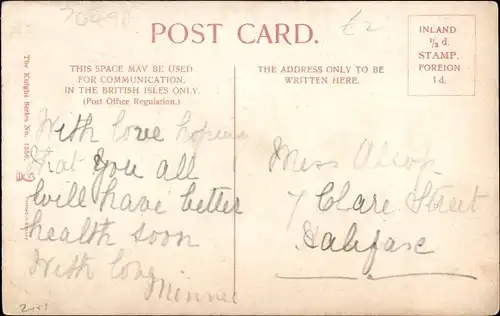 70490
£2
POST CARD.
INLAND
½ d.
STAMP.
FOREIGN
1 d.
THIS SPACE MAY BE USED
FOR COMMUNICATION.
IN THE BRITISH ISLES ONLY.
(Post Office Regulation.)
THE ADDRESS ONLY TO BE
WRITTEN HERE.
The Knight Series No.
With love hopeing
that you all
will have better
health soon
With love
Minnie
Miss Alsop
7 Clare Street
Halifax